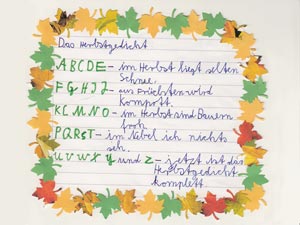 Das Herbstgedicht
A B C D E – im Herbst liegt selten
Schnee.
F G H I J – aus Früchten wird
Kompott.
K L M N O – im Herbst sind Bauern
froh.
P Q R S T – im Nebel ich nichts
seh.
U V W X Y und Z – jetzt ist das
Herbstgedicht
komplett.